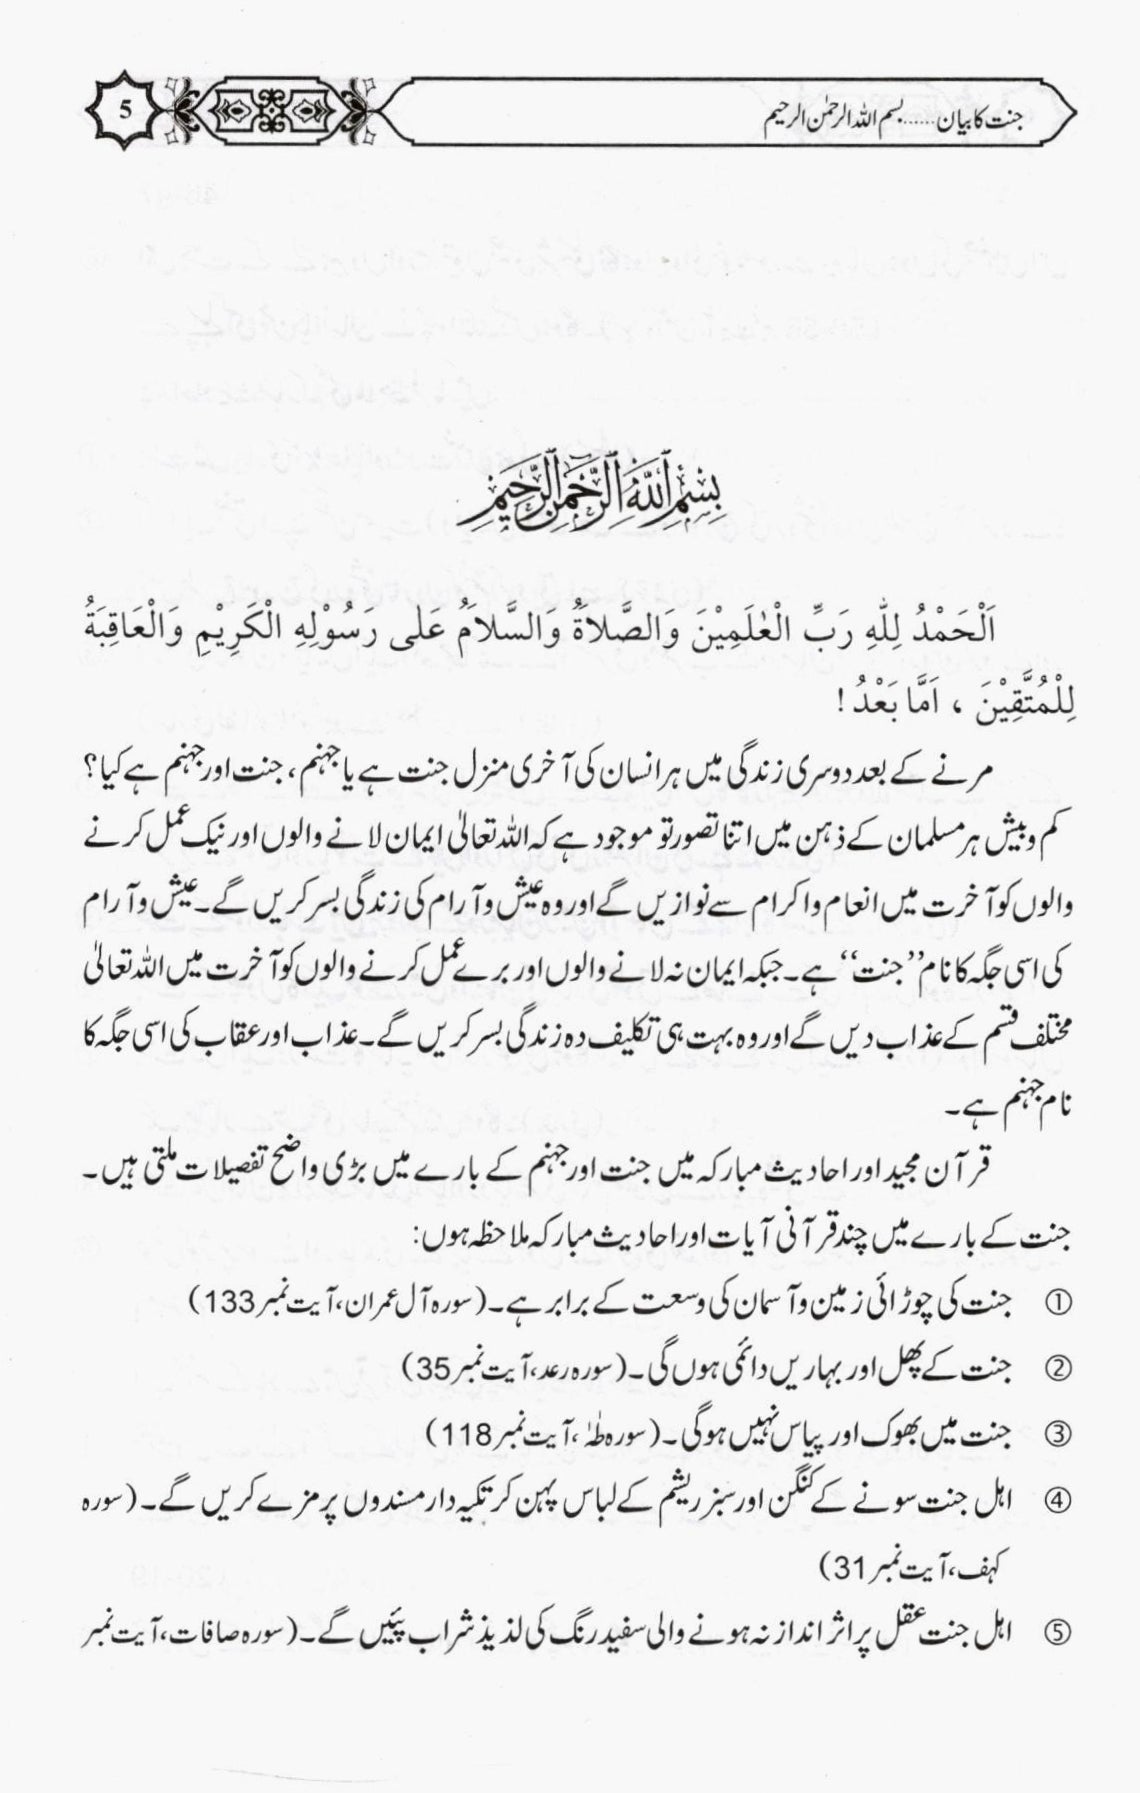 جنت کا بیان......بسم اللہ الرحمٰن الرحیم
5
بِسْمِ اللّٰهِ الرَّحْمٰنِ الرَّحِيْمِ
اَلْحَمْدُ لِلّٰهِ رَبِّ الْعٰلَمِيْنَ وَالصَّلاَةُ وَالسَّلاَمُ عَلٰى رَسُوْلِهِ الْكَرِيْمِ وَالْعَاقِبَةُ
لِلْمُتَّقِيْنَ ، اَمَّا بَعْدُ !
مرنے کے بعد دوسری زندگی میں ہر انسان کی آخری منزل جنت ہے یا جہنم، جنت اور جہنم ہے کیا؟
کم و بیش ہر مسلمان کے ذہن میں اتنا تصور تو موجود ہے کہ اللہ تعالیٰ ایمان لانے والوں اور نیک عمل کرنے
والوں کو آخرت میں انعام و اکرام سے نوازیں گے اور وہ عیش و آرام کی زندگی بسر کریں گے۔ عیش و آرام
کی اسی جگہ کا نام ’’جنت‘‘ ہے۔ جبکہ ایمان نہ لانے والوں اور برے عمل کرنے والوں کو آخرت میں اللہ تعالیٰ
مختلف قسم کے عذاب دیں گے اور وہ بہت ہی تکلیف دہ زندگی بسر کریں گے۔ عذاب اور عقاب کی اسی جگہ کا
نام جہنم ہے۔
قرآن مجید اور احادیث مبارکہ میں جنت اور جہنم کے بارے میں بڑی واضح تفصیلات ملتی ہیں۔
جنت کے بارے میں چند قرآنی آیات اور احادیث مبارکہ ملاحظہ ہوں:
① جنت کی چوڑائی زمین و آسمان کی وسعت کے برابر ہے۔ (سورہ آل عمران، آیت نمبر 133)
② جنت کے پھل اور بہاریں دائمی ہوں گی۔ (سورہ رعد، آیت نمبر 35)
③ جنت میں بھوک اور پیاس نہیں ہوگی۔ (سورہ طٰہٰ، آیت نمبر 118)
④ اہل جنت سونے کے کنگن اور سبز ریشم کے لباس پہن کر تکیہ دار مسندوں پر مزے کریں گے۔ (سورہ
کہف، آیت نمبر 31)
⑤ اہل جنت عقل پر اثر انداز نہ ہونے والی سفید رنگ کی لذیذ شراب پئیں گے۔ (سورہ صافات، آیت نمبر